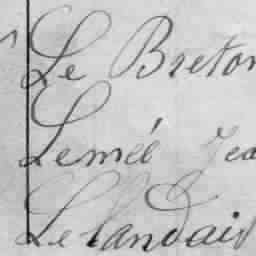 Le Breton
Lemée Jea
Lelandais